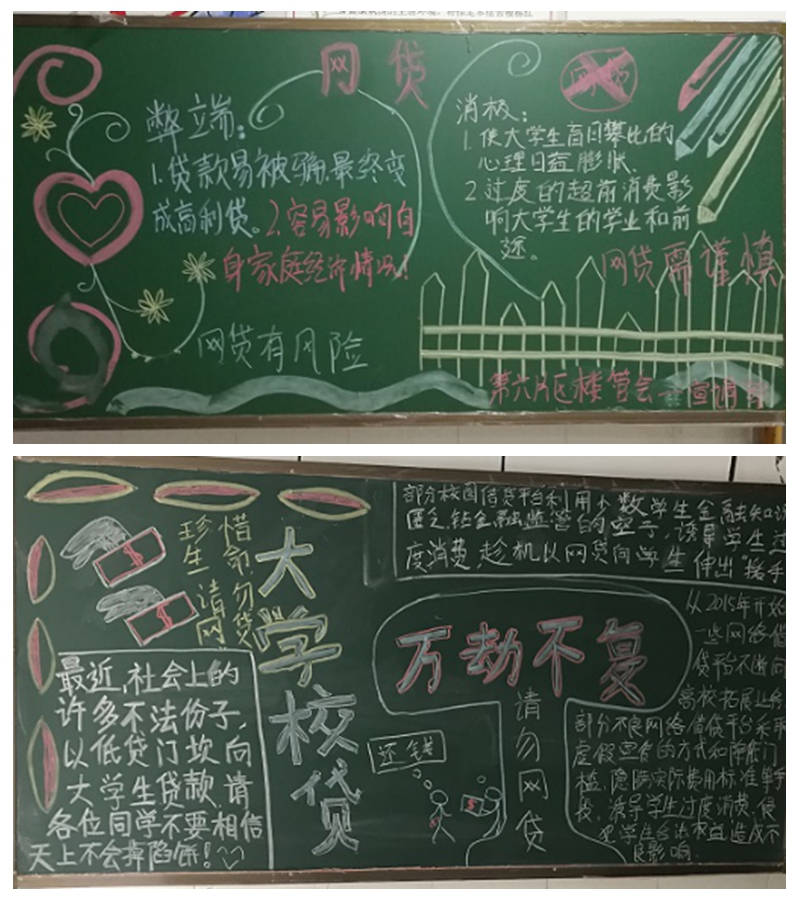 网贷
弊端：
1.贷款易被骗.最终变
成高利贷。2.容易影响自
身家庭经济情况！
网贷有风险
消极：
1.使大学生盲目攀比的
心理日益膨胀.
2.过度的超前消费影
响大学生的学业和前
途。
网贷需谨慎
第六片区楼管会—宣
珍惜
生命
请勿
网贷
大学校贷
最近,社会上的
许多不法份子,
以低贷门坎向
大学生贷款.请
各位同学不要相信
天上不会掉陷饼!
部分校园借贷平台利用少数学生金融知识
匮乏,钻金融监管的空子,诱单学生过
度消费,趁机以网贷向学生伸出"援手
万劫不复
请勿网贷
还钱
从2015年开始
一些网络借
贷平台不断向
高校拓展业务
部分不良网络借贷平台采取
虚假宣传的方式和降低门
槛,隐瞒实际费用标准等手
段,诱导学生过度消费,侵
犯学生合法权益造成不
良影响.